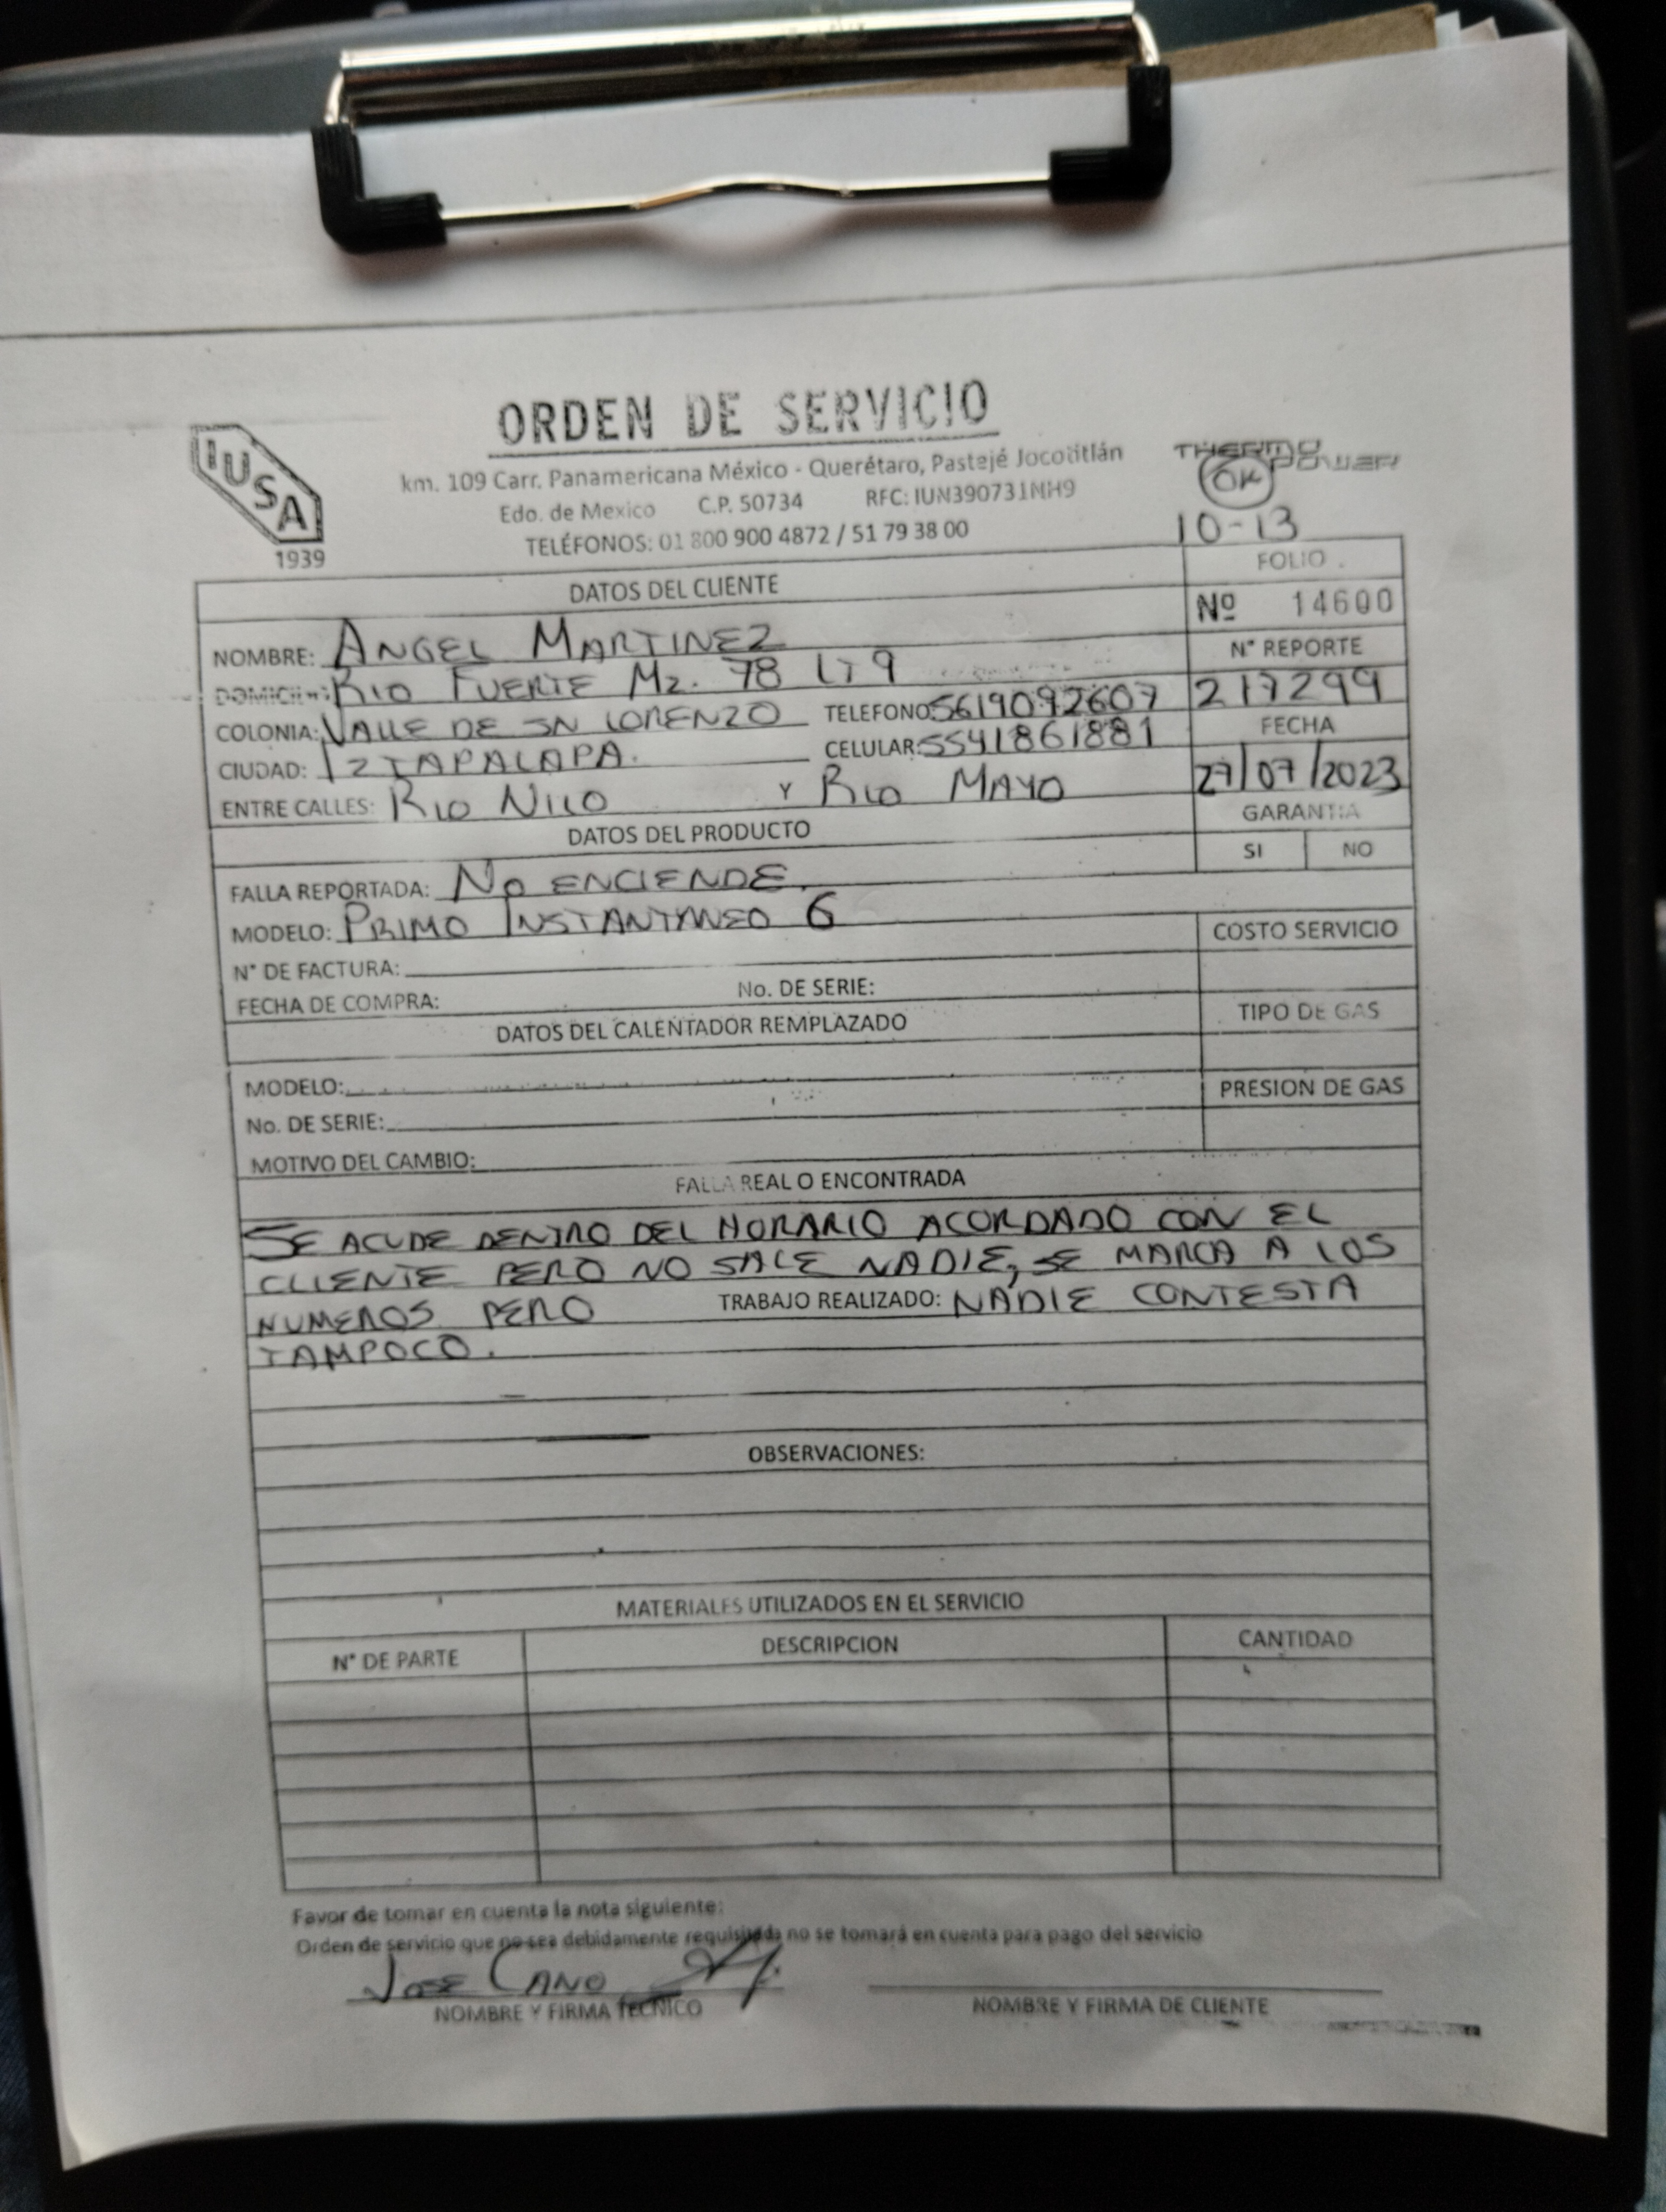 ORDEN DE SERVICIO
IUSA
1939
km. 109 Carr. Panamericana México - Querétaro, Pastejé Jocotitlán
Edo. de Mexico C.P. 50734 RFC: IUN390731NH9
TELÉFONOS: 01 800 900 4872 / 51 79 38 00
THERMO POWER
OK
10-13
DATOS DEL CLIENTE
FOLIO
Nº 14600
NOMBRE: ANGEL MARTINEZ
N° REPORTE
DOMICILIO: RIO FUERTE MZ. 78 LT 9
217299
COLONIA: VALLE DE SN LORENZO TELEFONO: 5619092607
FECHA
CIUDAD: IZTAPALAPA. CELULAR: 5541861881
27/07/2023
ENTRE CALLES: RIO NILO Y RIO MAYO
GARANTIA
DATOS DEL PRODUCTO
SI NO
FALLA REPORTADA: NO ENCIENDE.
MODELO: PRIMO INSTANTANEO 6
COSTO SERVICIO
N° DE FACTURA:
FECHA DE COMPRA: No. DE SERIE:
TIPO DE GAS
DATOS DEL CALENTADOR REMPLAZADO
MODELO:
PRESION DE GAS
No. DE SERIE:
MOTIVO DEL CAMBIO:
FALLA REAL O ENCONTRADA
SE ACUDE DENTRO DEL HORARIO ACORDADO CON EL
CLIENTE PERO NO SALE NADIE, SE MARCA A LOS
NUMEROS PERO TRABAJO REALIZADO: NADIE CONTESTA
TAMPOCO.
OBSERVACIONES:
MATERIALES UTILIZADOS EN EL SERVICIO
N° DE PARTE DESCRIPCION CANTIDAD
Favor de tomar en cuenta la nota siguiente:
Orden de servicio que no sea debidamente requisitada no se tomará en cuenta para pago del servicio
JOSE CANO
NOMBRE Y FIRMA TECNICO NOMBRE Y FIRMA DE CLIENTE